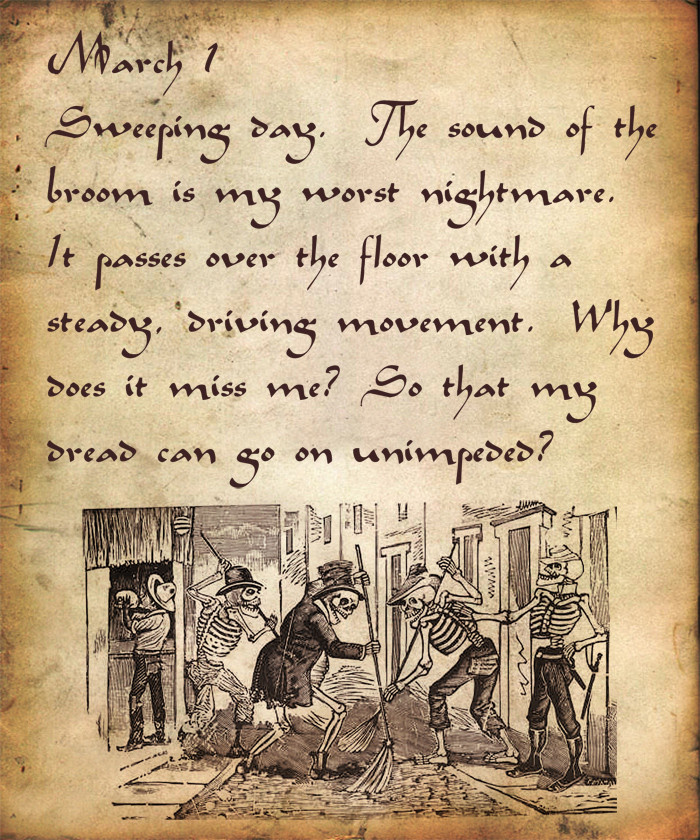 March 1
Sweeping day. The sound of the
broom is my worst nightmare.
It passes over the floor with a
steady, driving movement. Why
does it miss me? So that my
dread can go on unimpeded?